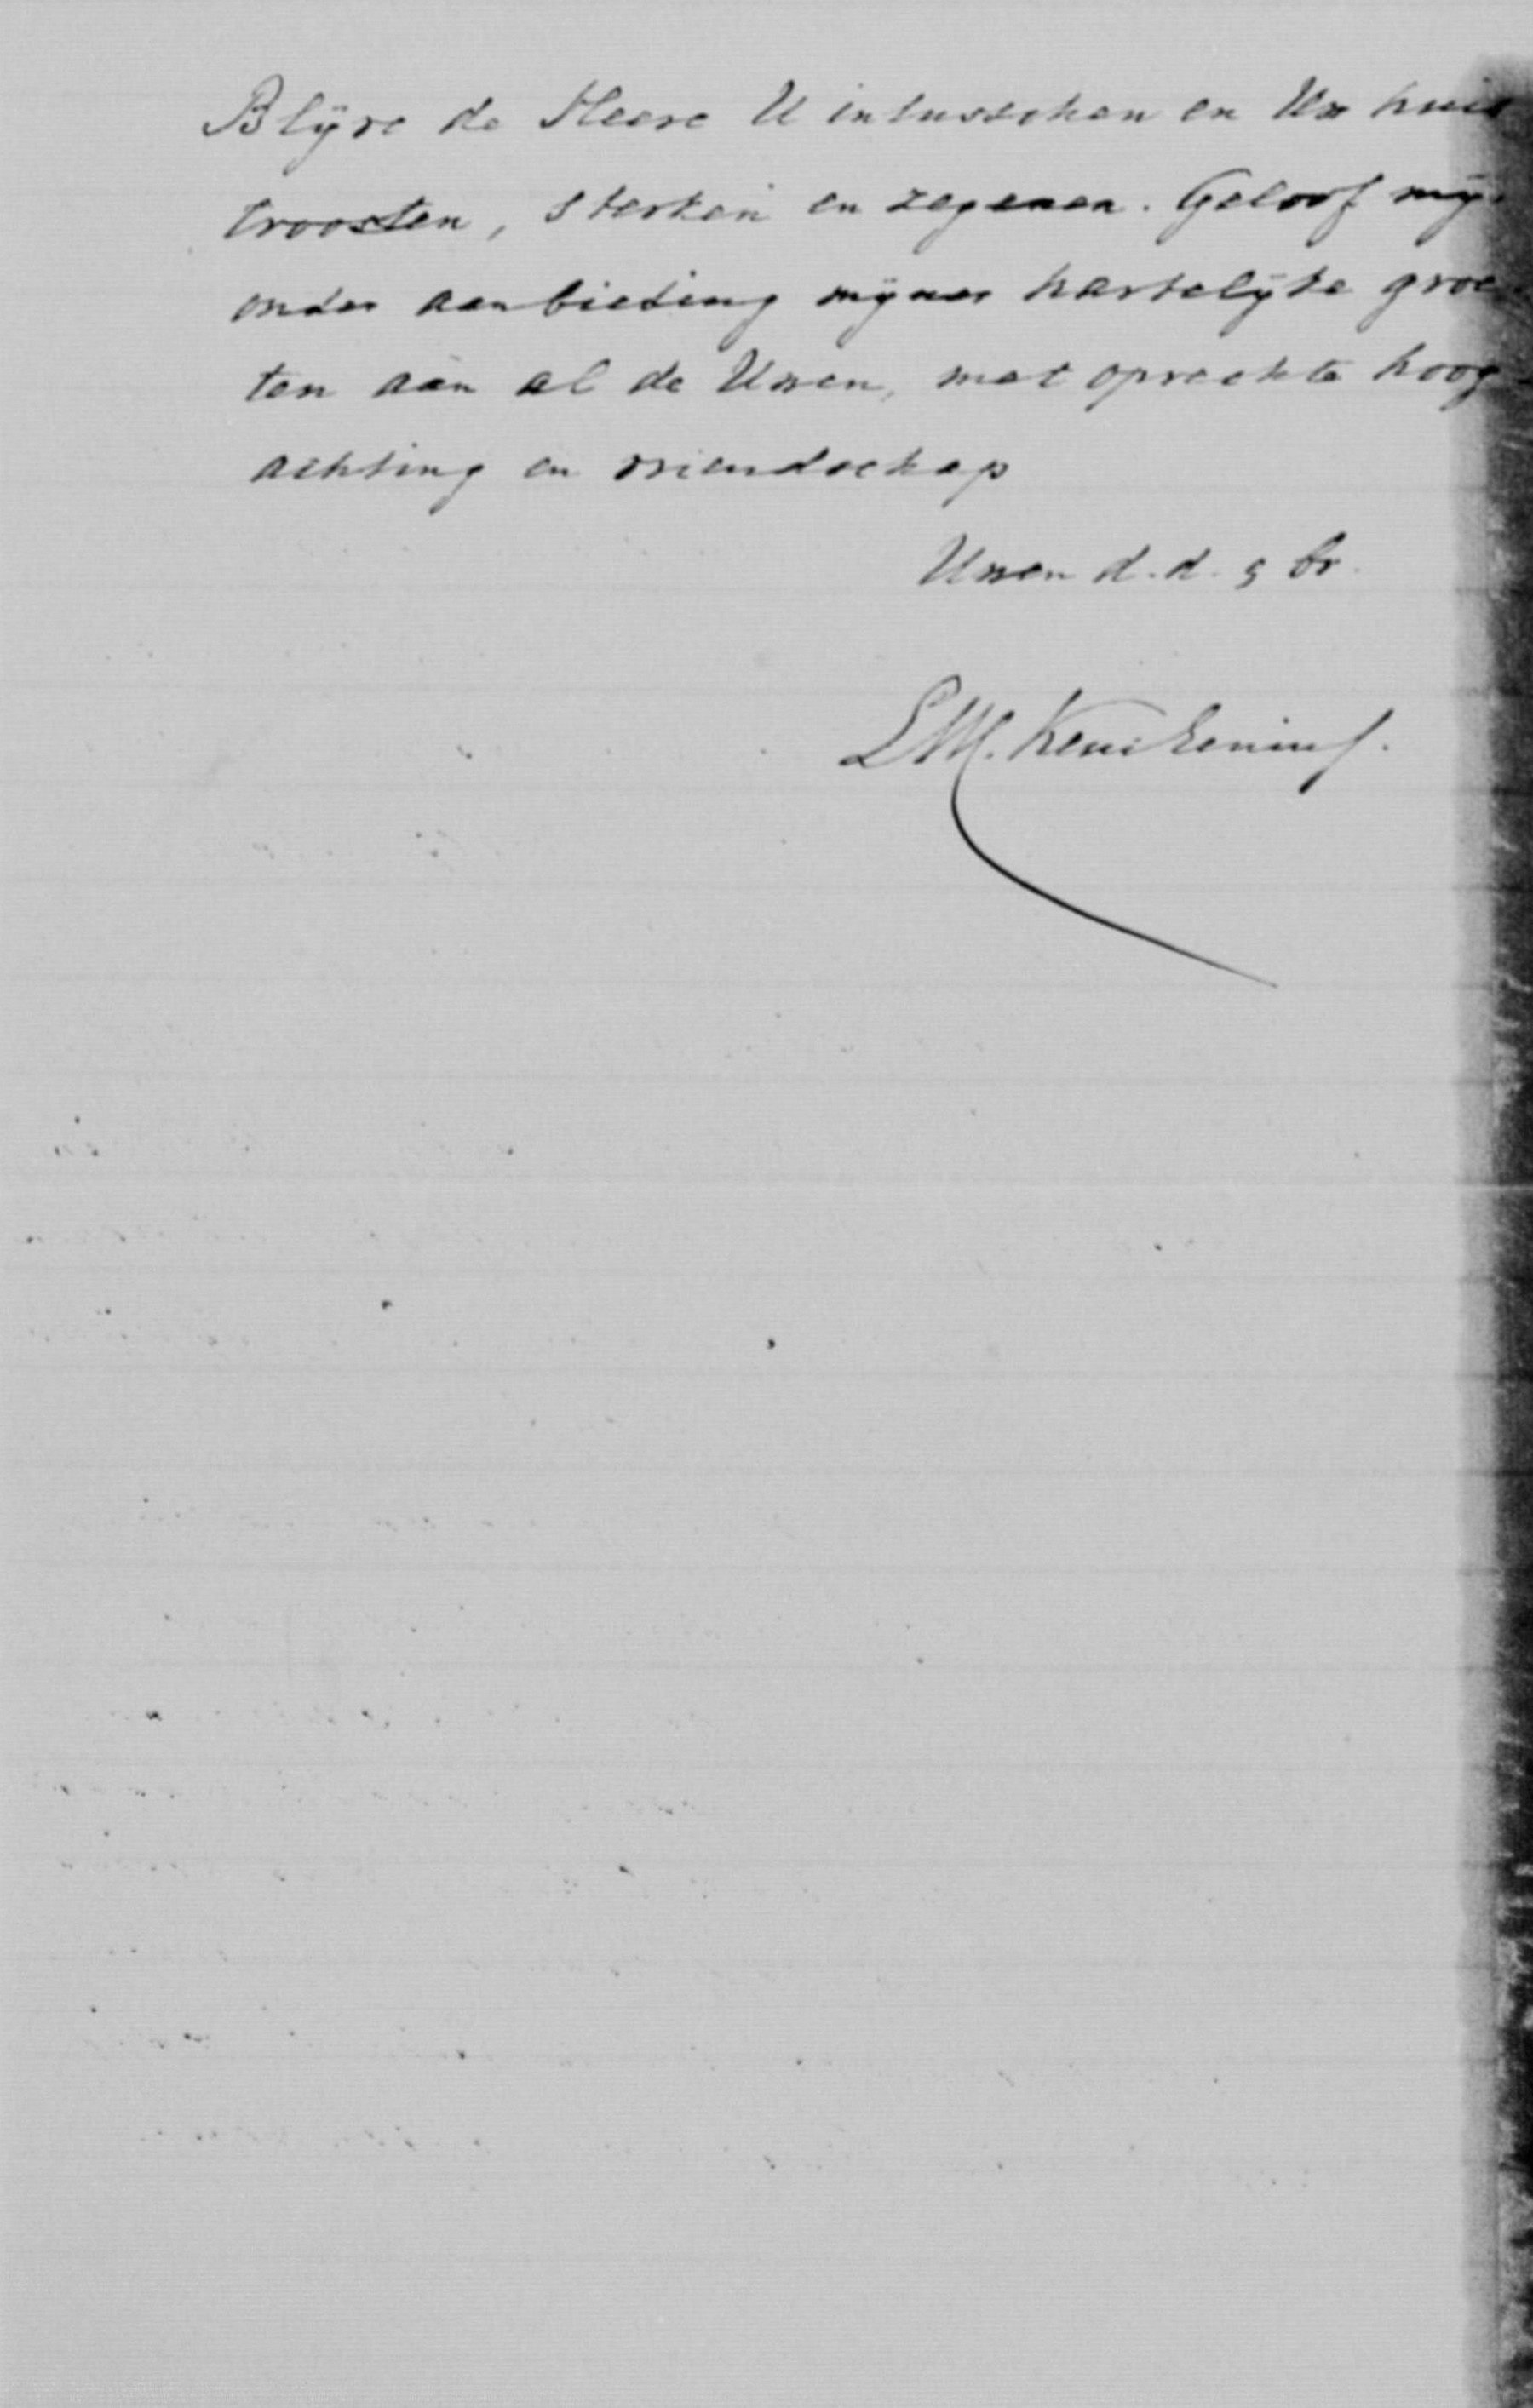 Blijve de Heere U intusschen en Uw huis
troosten, sterken en zegenen. Geloof mij
onder aanbieding mijner hartelijke groe-
ten aan al de Uwen, met oprechte hoog-
achting en vriendschap
Uwen d. d. g br.
L.W.C. Keuchenius.